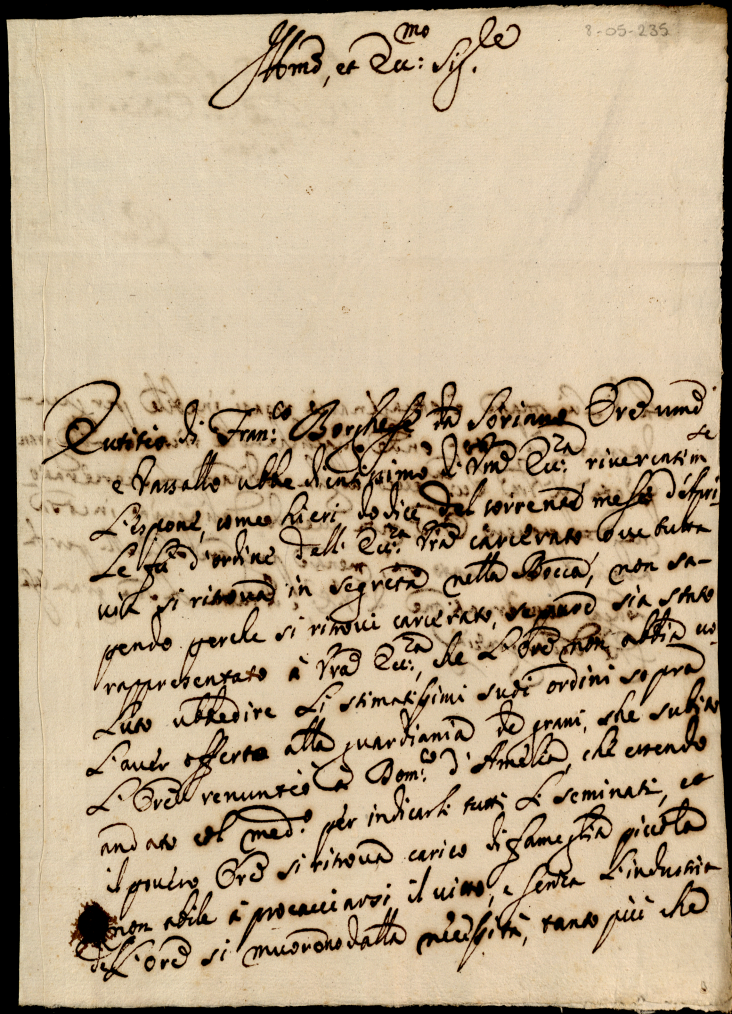 8-05-235
Ill.mo, et Ecc.mo Sig.re
Eutitio di Fran.co Borghesse da Soriano Ore umo
e vassallo ubbedientissimo di Vra Ecc.za riverentim.te
L'espone, come hieri dodici del corrente mese d'Apri-
le fu d'ordine dell'Ecc.za Vra carcerato ove tutta
via si ritrova in segreta nella Rocca, non sa-
pendo perche si ritrovi carcerato, se pure sia stato
rappresentato à Vra Ecc.za, che L'Ore non abbia vo-
luto ubbedire Li stimatissimi suoi ordini sopra
L'aver offerto alla guardiania de grani, che subito
L'Ore renuntiò à Dom.co d'Amelia, che essendo
andato col med.o per indicarli tutti Li seminati, et
il povero Ore si ritrova carico di fameglia piccola
non abile à procacciarsi il vitto, e senza L'industria
dell'Ore si muorono dalla necessità, tanto più che